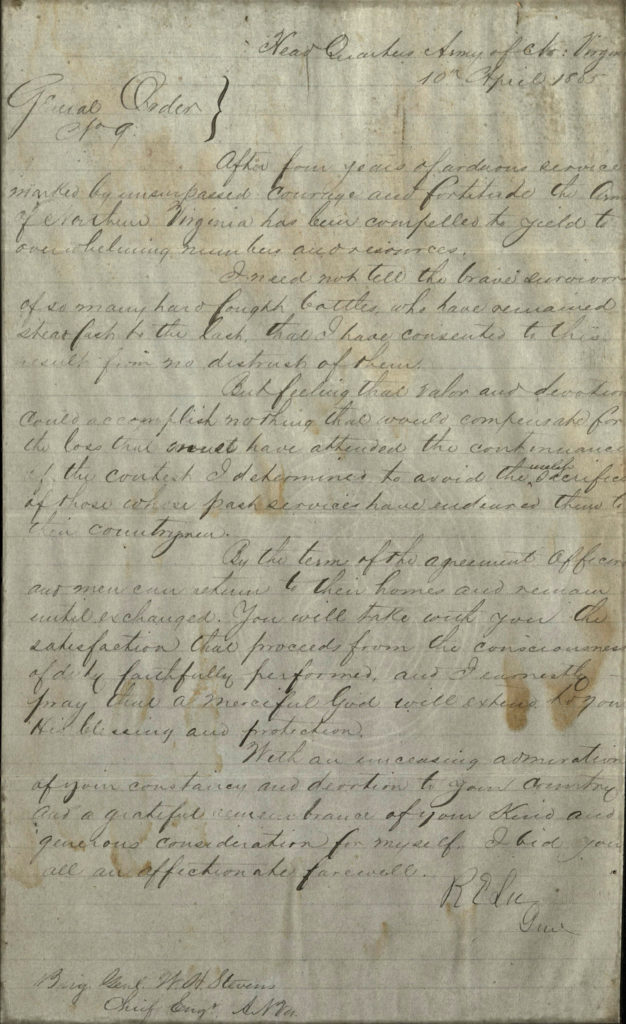 Head Quarters Army of No: Virgin
10th April 1865
General Order
No 9.
After four years of arduous service
marked by unsurpassed courage and fortitude the Arm
of Northern Virginia has been compelled to yield to
overwhelming numbers and resources.
I need not tell the brave survivors
of so many hard fought battles, who have remained
steadfast to the last, that I have consented to this
result from no distrust of them.
But feeling that valor and devotion
could accomplish nothing that would compensate for
the loss that must have attended the continuance
of the contest I determined to avoid the useless sacrifice
of those whose past services have endeared them to
their countrymen.
By the terms of the agreement Officers
and men can return to their homes and remain
until exchanged. You will take with you the
satisfaction that proceeds from the consciousness
of duty faithfully performed, and I earnestly
pray that a Merciful God will extend to you
His blessing and protection.
With an unceasing admiration
of your constancy and devotion to your Country
and a grateful remembrance of your Kind and
generous consideration for myself. I bid you
all an affectionate farewell.
R E Lee
Genl
Brig. Genl. W. H. Stevens
Chief Engr A N Va